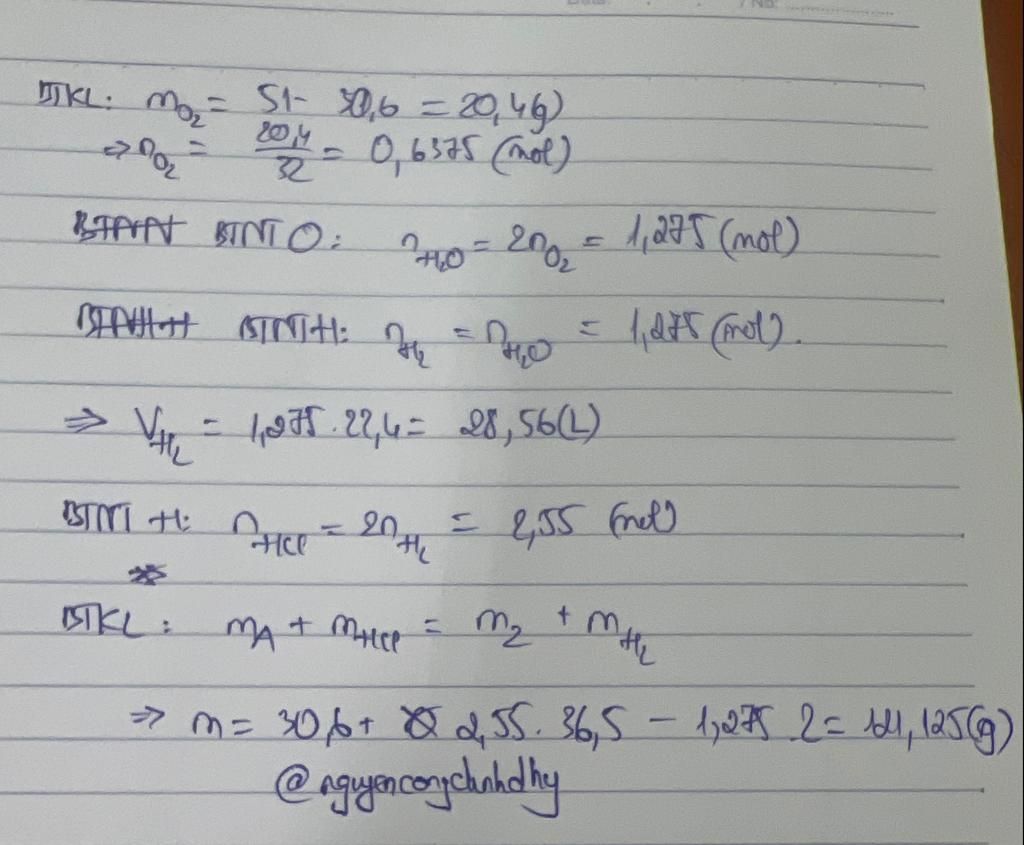 / No:
BTKL: mO₂ = 51 - 30,6 = 20,4(g)
=> nO₂ = 20,4/32 = 0,6375 (mol)
BTNT O: nH₂O = 2nO₂ = 1,275 (mol)
BTNT H: nH₂ = nH₂O = 1,275 (mol).
=> VH₂ = 1,275 . 22,4 = 28,56(L)
BTNT H: nHCl = 2nH₂ = 2,55 (mol)
BTKL: mA + mHCl = m2 + mH₂
=> m = 30,6 + 2,55. 36,5 - 1,275 . 2 = 121,125(g)
@nguyencongchinhdhy